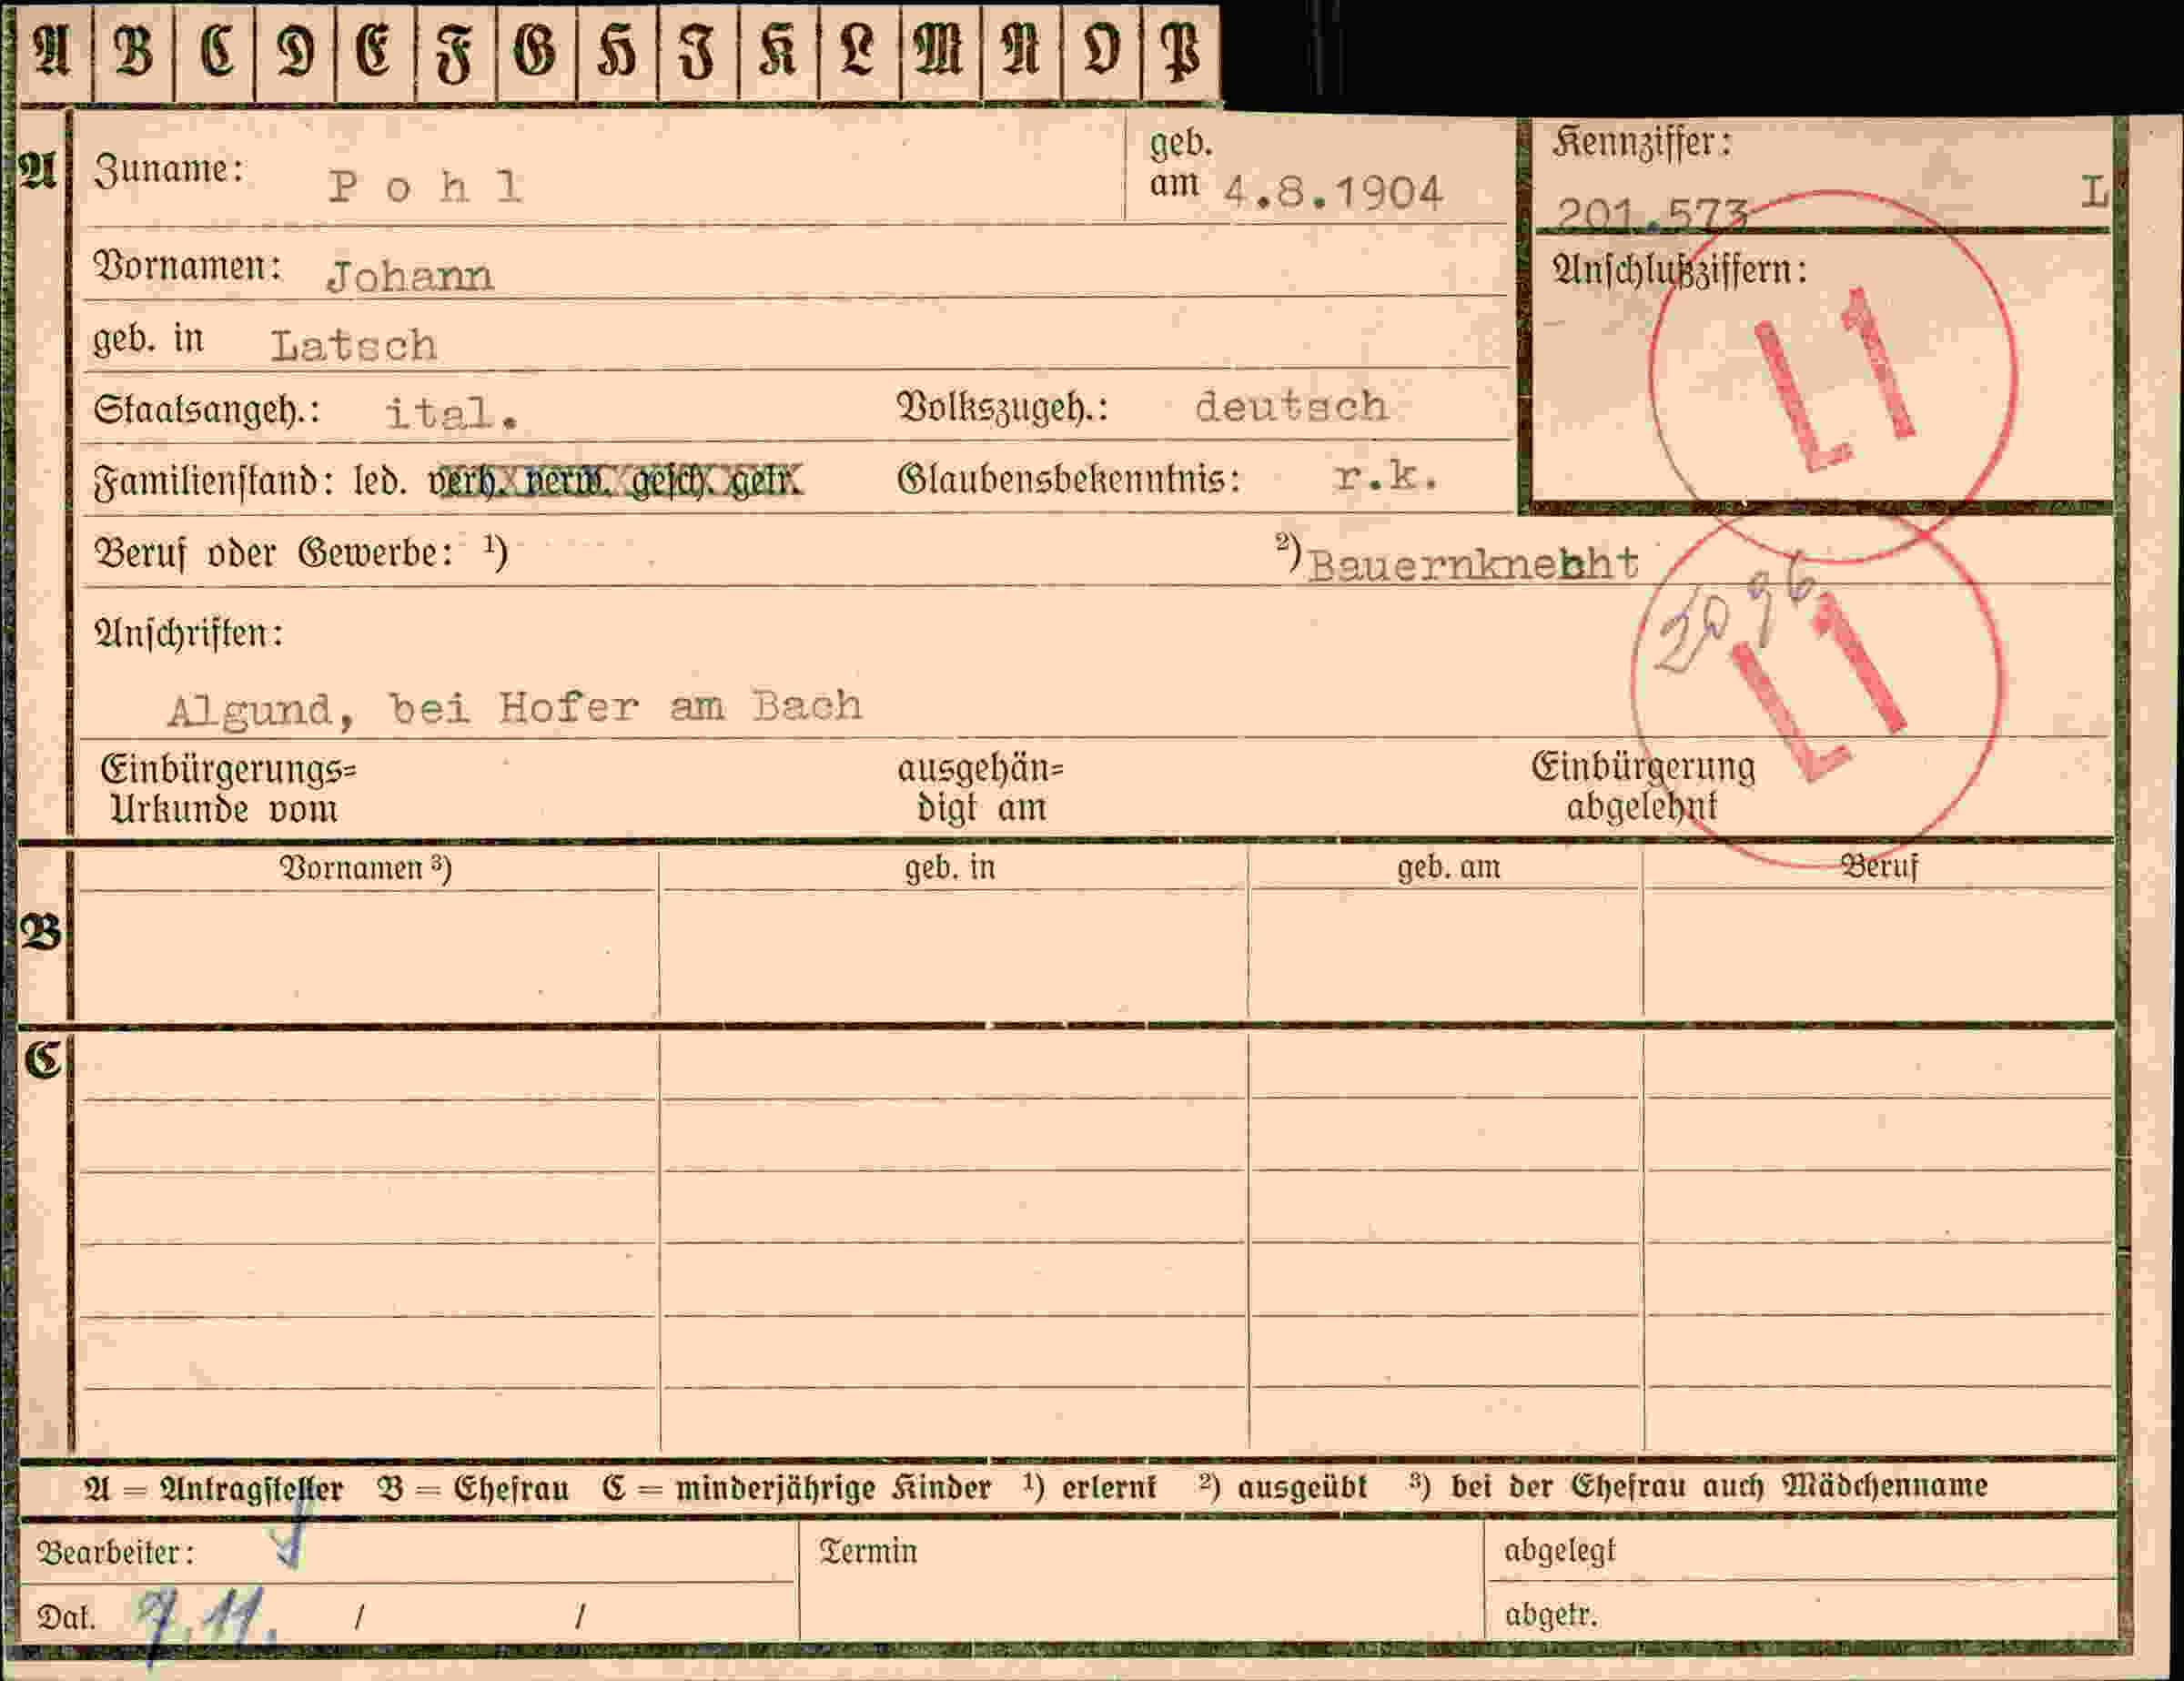 A B C D E F G H I K L M N O P
A Zuname: Pohl geb. am 4.8.1904
Kennziffer: 201.573 L
Vornamen: Johann
Anschlußziffern:
L1
geb. in Latsch
Staatsangeh.: ital. Volkszugeh.: deutsch
Familienstand: led. verh. verw. gesch. getr. Glaubensbekenntnis: r.k.
Beruf oder Gewerbe: 1) 2) Bauernknehht
2096
L1
Anschriften:
Algund, bei Hofer am Bach
Einbürgerungs= ausgehän= Einbürgerung
Urkunde vom digt am abgelehnt
Vornamen 3) geb. in geb. am Beruf
B
C
A = Antragsteller B = Ehefrau C = minderjährige Kinder 1) erlernt 2) ausgeübt 3) bei der Ehefrau auch Mädchenname
Bearbeiter: Termin abgelegt
Dat. 7.11. / / abgetr.